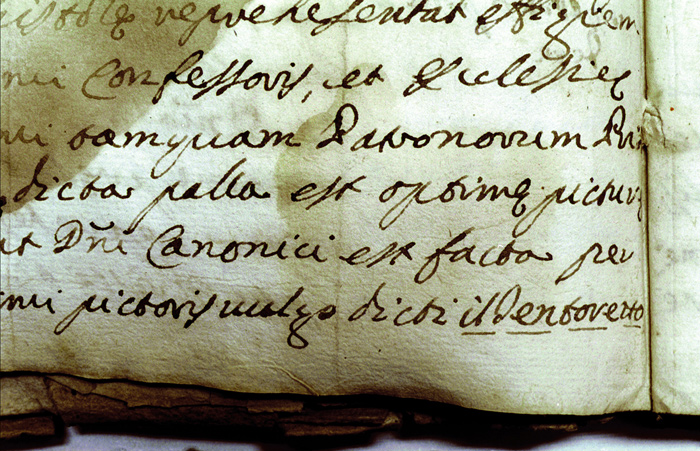 repræsentat effigiem
Confessoris, et Ecclesięę
tamquam Patronorum
dicta palla est optimę pictur
Dñi Canonici est facta per
pictoris uulgo dicti il Tentoretto